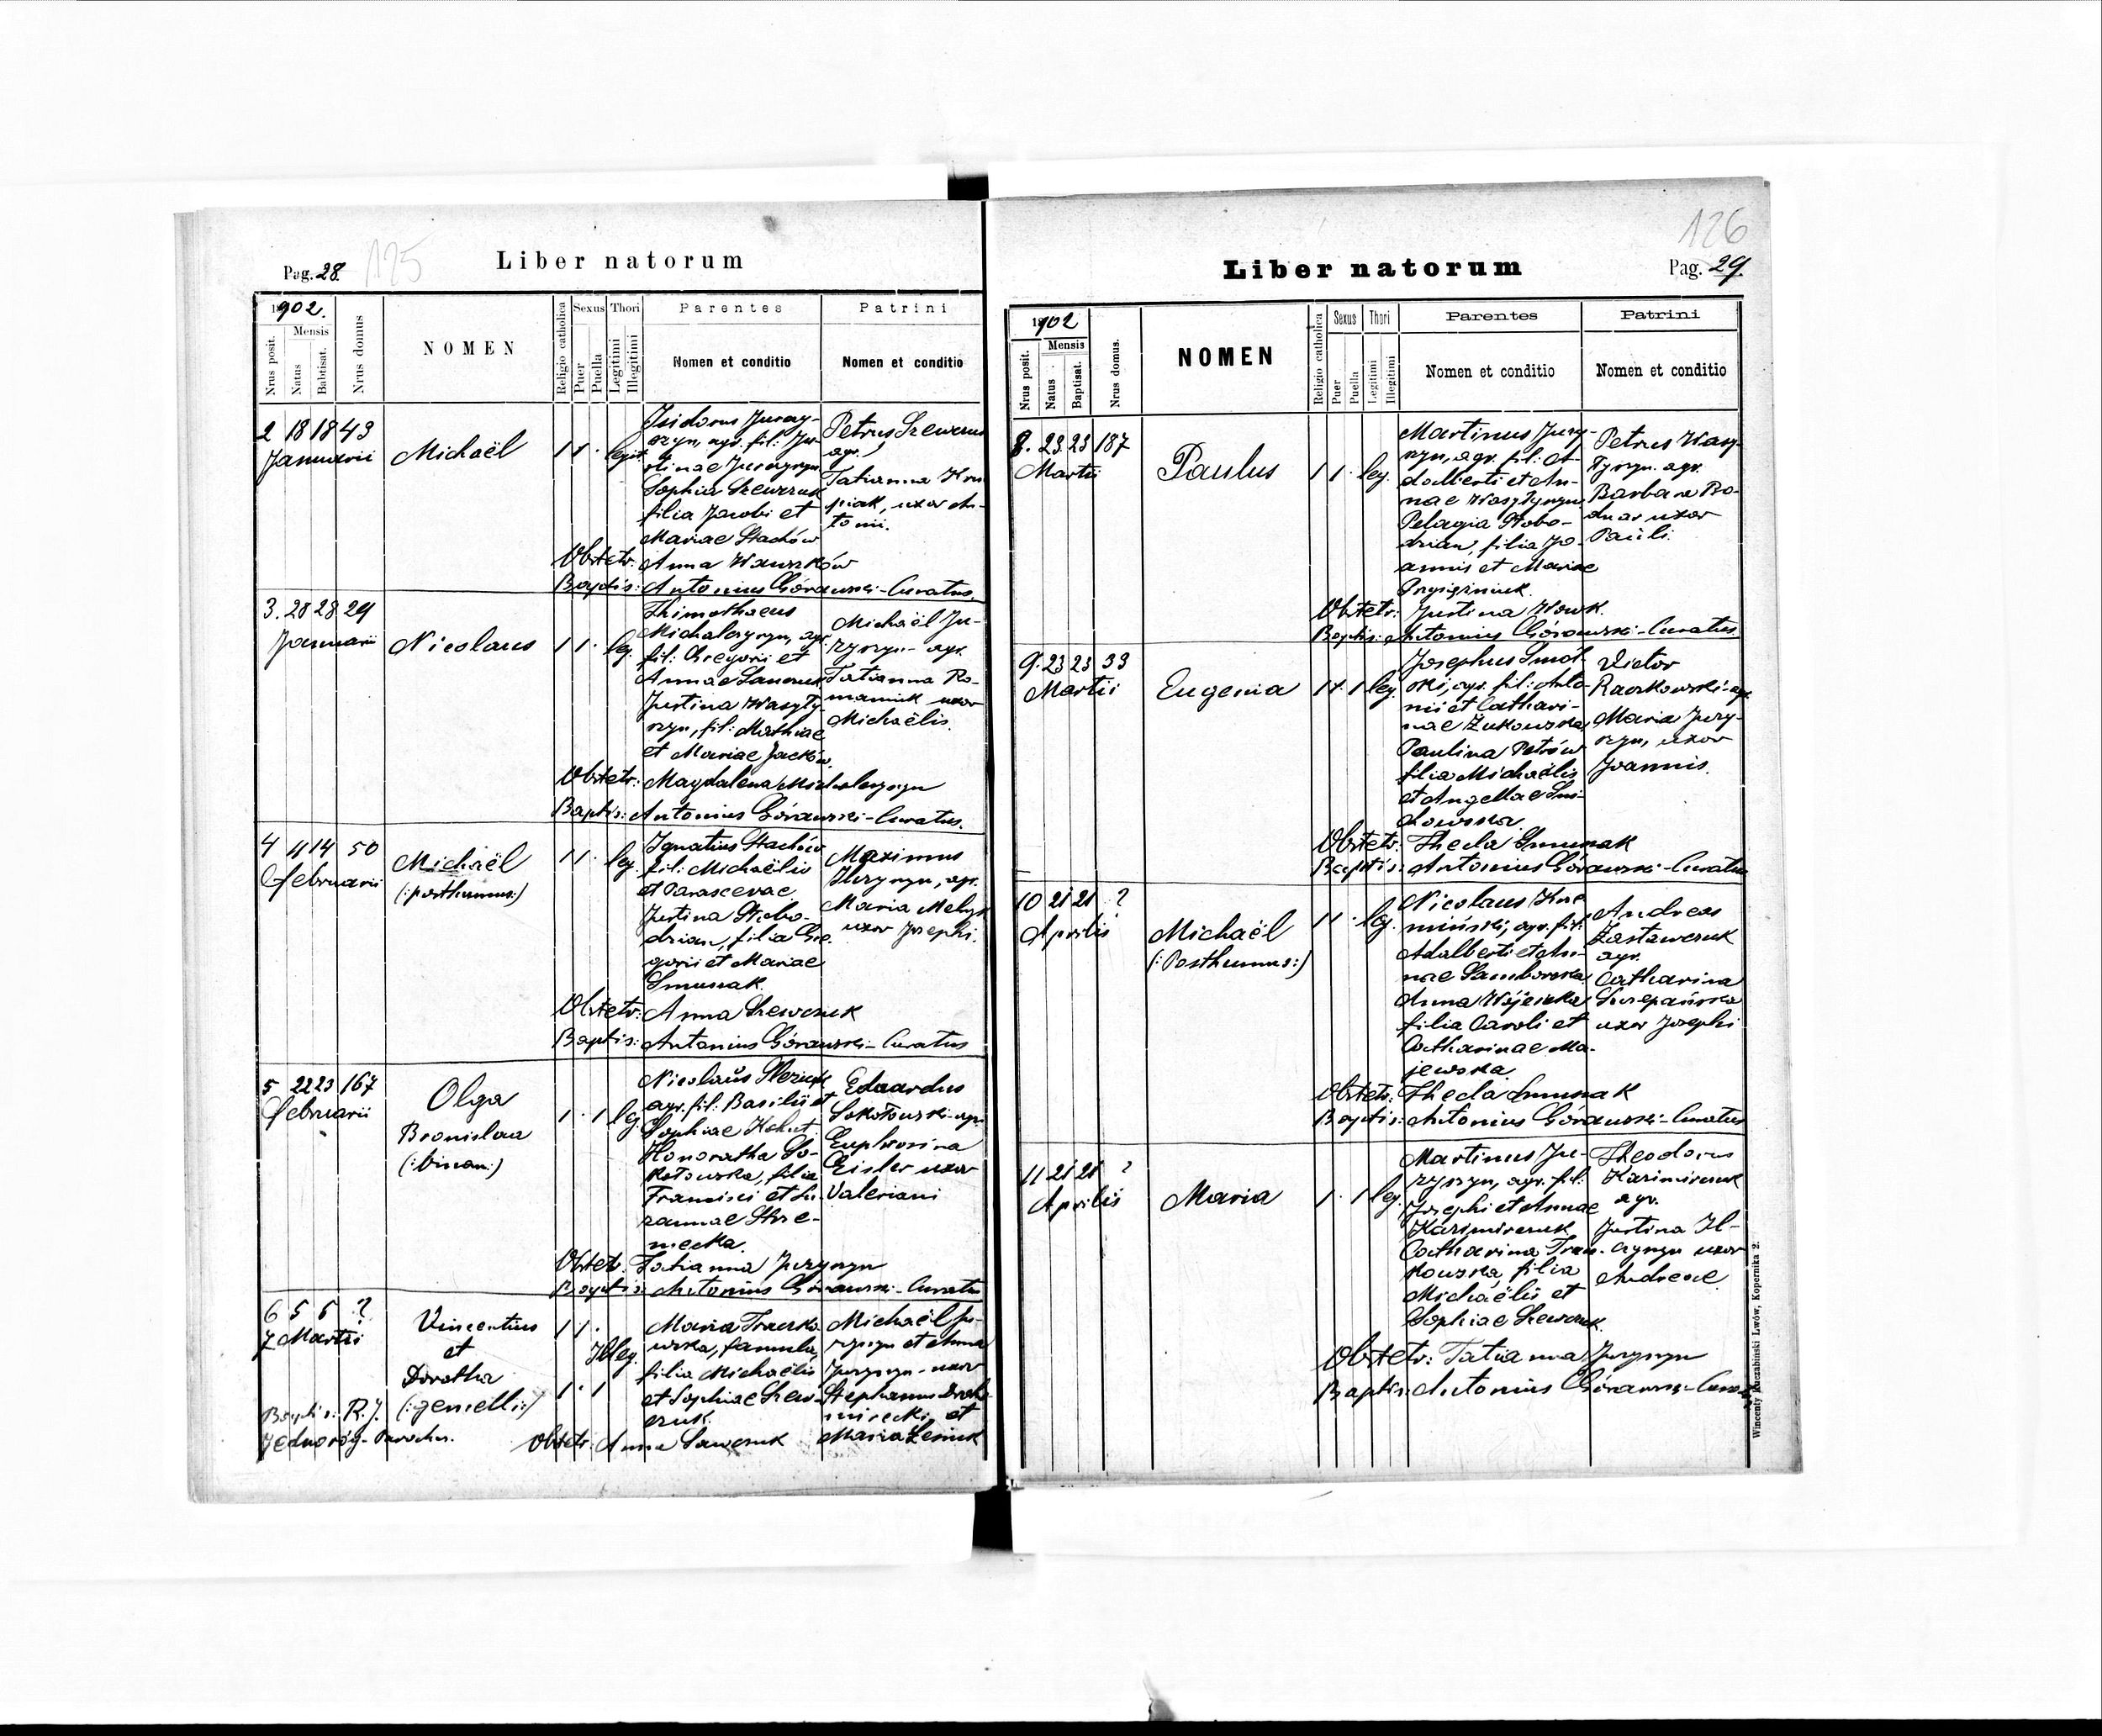 Pag. 28. 125
Liber natorum
1902.
Mensis
Nrus posit.
Natus
Babtisat.
Nrus domus
NOMEN
Religio catholica
Sexus
Puer
Puella
Thori
Legitimi
Illegitimi
Parentes
Nomen et conditio
Patrini
Nomen et conditio
2 18 18 43
Januarii
Michaël
1 1 legit.
Isidorus Juray-
Sophia Szewczuk
filia Jacobi et
Mariae Stachów
Petrus Szewczuk
agr.
Tatianna
uxor An-
tonii.
Obstetr: Anna
Baptis: Antonius Górawski - Curatus.
3. 28 28 29
Januarii
Nicolaus
1 1 leg.
Thimothaeus
fil: Gregorii et
Annae
Justina Wasyły-
szyn, fil: Mathiae
et Mariae Jacków.
Michaël Ju-
rzyszyn - agr.
Tatianna Ro-
maniuk uxor
Michaëlis.
Obstetr: Magdalena
Baptis: Antonius Górawski - Curatus.
4 14 50
Februarii
Michaël
(:posthumus:)
1 1 leg.
Ignatius Stachów
fil: Michaëlis
et Parascevae
Justina
filia Gre-
gorii et Mariae
Maximus
agr.
Maria
uxor Josephi.
Obstetr: Anna Szewczuk
Baptis: Antonius Górawski - Curatus
5 22 23 167
Februarii
Olga
Bronislava
(:binom:)
1 1 leg.
Nicolaus
agr. fil: Basilii et
Sophiae
Honoratha So-
kołowska, filia
Francisci et Su-
zannae
Eduardus
Sokołowski - agr.
Euphrosina
Eisler uxor
Valeriani
Obstet: Tatianna Jurzyszyn
Baptis: Antonius Górawski - Curatus
6 5 6 ?
7 Martii
Vincentius
et
Dorothea
(:gemelli:)
1 1
Illeg.
1 1
Maria Traczko-
wska, famula,
filia Michaëlis
et Sophiae Szew-
czuk.
Michaël Ju-
rzyszyn et Anna
Jurzyszyn - uxor
Stephanus
et
Maria
Baptis: R. J.
Jednoróg - Parochus.
Obstetr: Anna Sawczuk
126
Liber natorum
Pag. 29.
1902
Mensis
Nrus posit.
Natus
Baptisat.
Nrus domus.
NOMEN
Religio catholica
Sexus
Puer
Puella
Thori
Legitimi
Illegitimi
Parentes
Nomen et conditio
Patrini
Nomen et conditio
8. 23 23 187
Martii
Paulus
1 1 leg.
Martinus Jurzy-
szyn, agr. fil: A-
dalberti et An-
nae Wasyłyszyn
Pelagia
filia Jo-
annis et Mariae
Petrus Wasy-
łyszyn. agr.
Barbara Bo-
dnar uxor
Pauli.
Obstetr: Justina Wowk.
Baptis: Antonius Górawski - Curatus
9. 23 23 33
Martii
Eugenia
1 1 leg.
Josephus Smol-
ski, agr. fil: Anto-
nii et Cathari-
nae Żukowska
Paulina Petrów
filia Michaëlis
et Angellae
Victor
Raczkowski - agr.
Maria Jurzy-
szyn, uxor
Joannis.
Obstetr: Thecla
Baptis: Antonius Górawski - Curatus
10 21 21 ?
Aprilis
Michaël
(:Posthumus:)
1 1 leg.
Nicolaus
agr. fil:
Adalberti et An-
nae Samborska
Anna
filia Caroli et
Catharinae Ma-
jewska
Andreas
Zastawczuk
agr.
Catharina
Szczepańska
uxor Josephi
Obstetr: Thecla
Baptis: Antonius Górawski - Curatus
11 21 21 ?
Aprilis
Maria
1 1 leg.
Martinus Ju-
rzyszyn, agr. fil:
Josephi et Annae
Kazimirczuk
Catharina Tracz-
kowska, filia
Michaëlis et
Sophiae Szewczuk.
Theodorus
Kazimirczuk
agr.
Justina Il-
czyszyn uxor
Andreae
Obstetr: Tatianna Jurzyszyn
Baptis: Antonius Górawski - Curatus
Wincenty Kuczabiński Lwów, Kopernika 2.